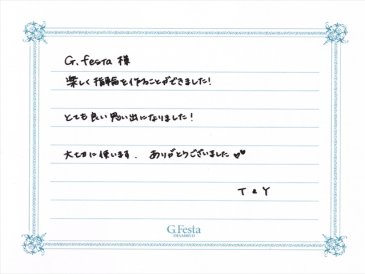 G.festa 様
楽しく指輪を作ることができました!
とても良い思い出になりました!
大切に使います. ありがとうございました♡♡
T & Y
G.Festa